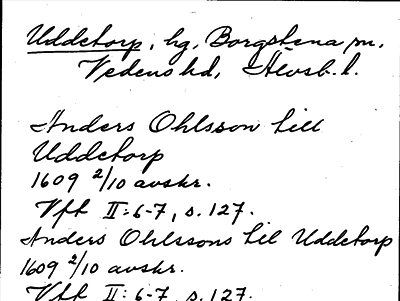 Uddetorp, hg, Borgstena sn.
Vedens hd, Älvsb. l.
Anders Ohlsson till
Uddetorp
1609 2/10 avskr.
Vft II:6-7, s. 127.
Anders Ohlssons til Uddetorp
1609 2/10 avskr.
Vft II:6-7, s. 127.